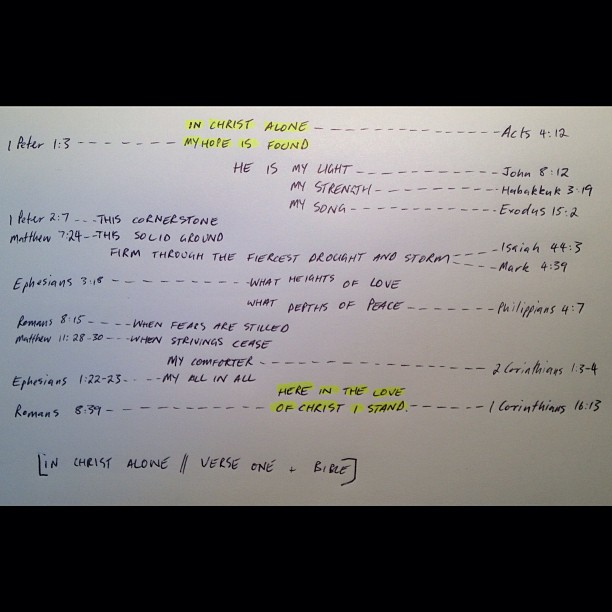 IN CHRIST ALONE ------ Acts 4:12
1 Peter 1:3 ------ MY HOPE IS FOUND
HE IS MY LIGHT ------ John 8:12
MY STRENGTH ------ Habakkuk 3:19
MY SONG ------ Exodus 15:2
1 Peter 2:7 ---- THIS CORNERSTONE
Matthew 7:24 -- THIS SOLID GROUND
FIRM THROUGH THE FIERCEST DROUGHT AND STORM -- Isaiah 44:3
-- Mark 4:39
Ephesians 3:18 ------ WHAT HEIGHTS OF LOVE
WHAT DEPTHS OF PEACE ------ Philippians 4:7
Romans 8:15 ----- WHEN FEARS ARE STILLED
Matthew 11:28-30 --- WHEN STRIVINGS CEASE
MY COMFORTER ------ 2 Corinthians 1:3-4
Ephesians 1:22-23 ---- MY ALL IN ALL
HERE IN THE LOVE
Romans 8:39 ------ OF CHRIST I STAND. ------ 1 Corinthians 16:13
[IN CHRIST ALONE // VERSE ONE + BIBLE]